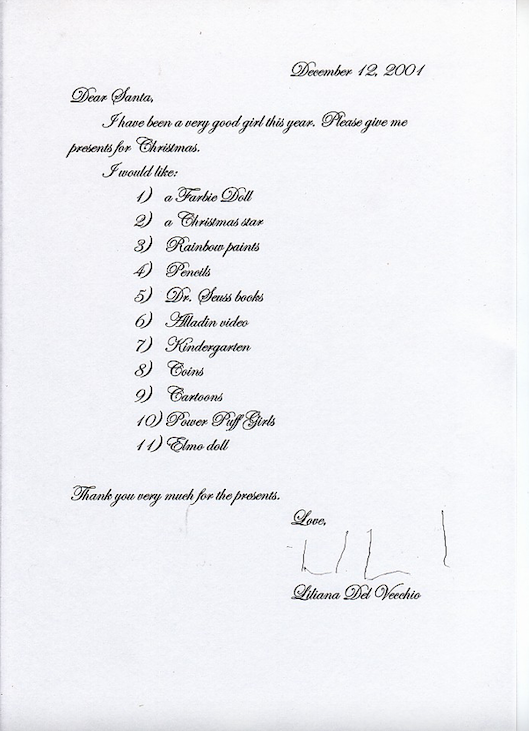 December 12, 2001
Dear Santa,
I have been a very good girl this year. Please give me
presents for Christmas.
I would like:
1) a Farbie Doll
2) a Christmas star
3) Rainbow paints
4) Pencils
5) Dr. Seuss books
6) Alladin video
7) Kindergarten
8) Coins
9) Cartoons
10) Power Puff Girls
11) Elmo doll
Thank you very much for the presents.
Love,
LILI
Liliana Del Vecchio